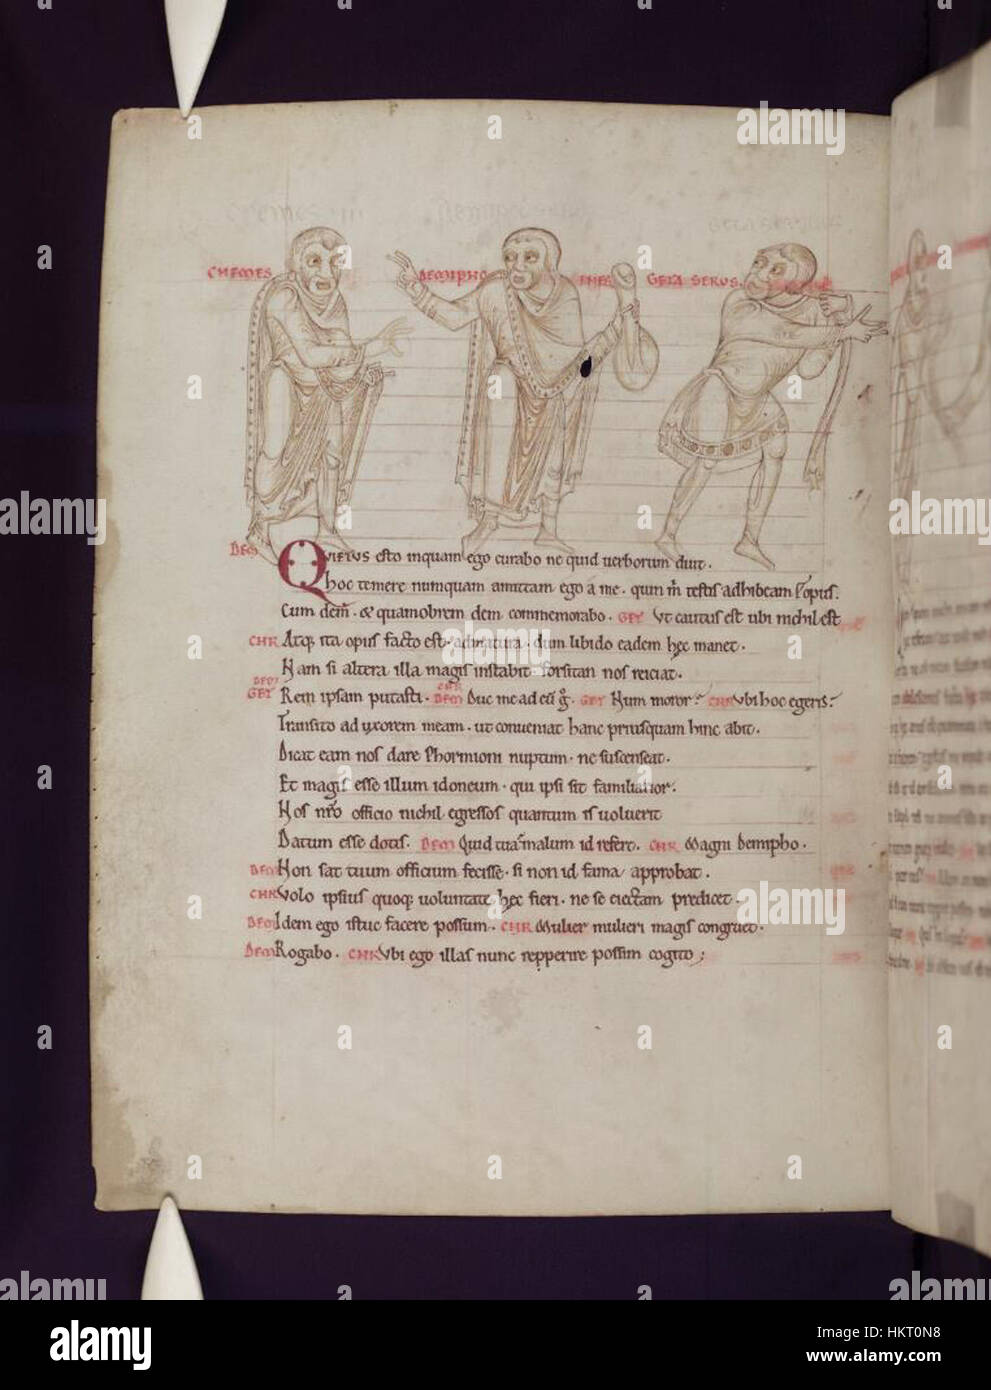 CHEMES DEMIPHO ENES GETA SERUS
DEM QVIETUS esto inquam ego curabo ne quid uerborum duit.
hoc temere numquam amittam ego a me. quin m̄ testis adhibeam
Cum dem̄. & quamobrem dem commemorabo. GET Vt cautus est ubi nichil est
CHR Atq; ita opus facto est. dum libido eadem hęc manet.
Nam si altera illa magis instabit forsitan nos reiciat.
GET Rem ipsam putasti. DEM Duc me ad eū g̊. GET Non moror? CHR Vbi hoc egeris?
Transito ad uxorem meam. ut conueniat hanc priusquam hinc abit.
Dicat eam nos dare Phormioni nuptum. ne suscenseat.
Et magis esse illum idoneum. qui ipsi sit familiarior.
Nos nr̄o officio nichil egressos quantum is uoluerit
Datum esse dotis. DEM Quid tua malum id refert. CHR Magni Demipho.
DEM Non sat tuum officium fecisse. si non id fama approbat.
CHR Volo ipsius quoq; uoluntate hęc fieri. ne se eiectam predicet.
DEM Idem ego istuc facere possum. CHR Mulier mulieri magis congruet.
DEM Rogabo. CHR Vbi ego illas nunc repperire possim cogito;
alamy
Image ID: HKT0N8
www.alamy.com